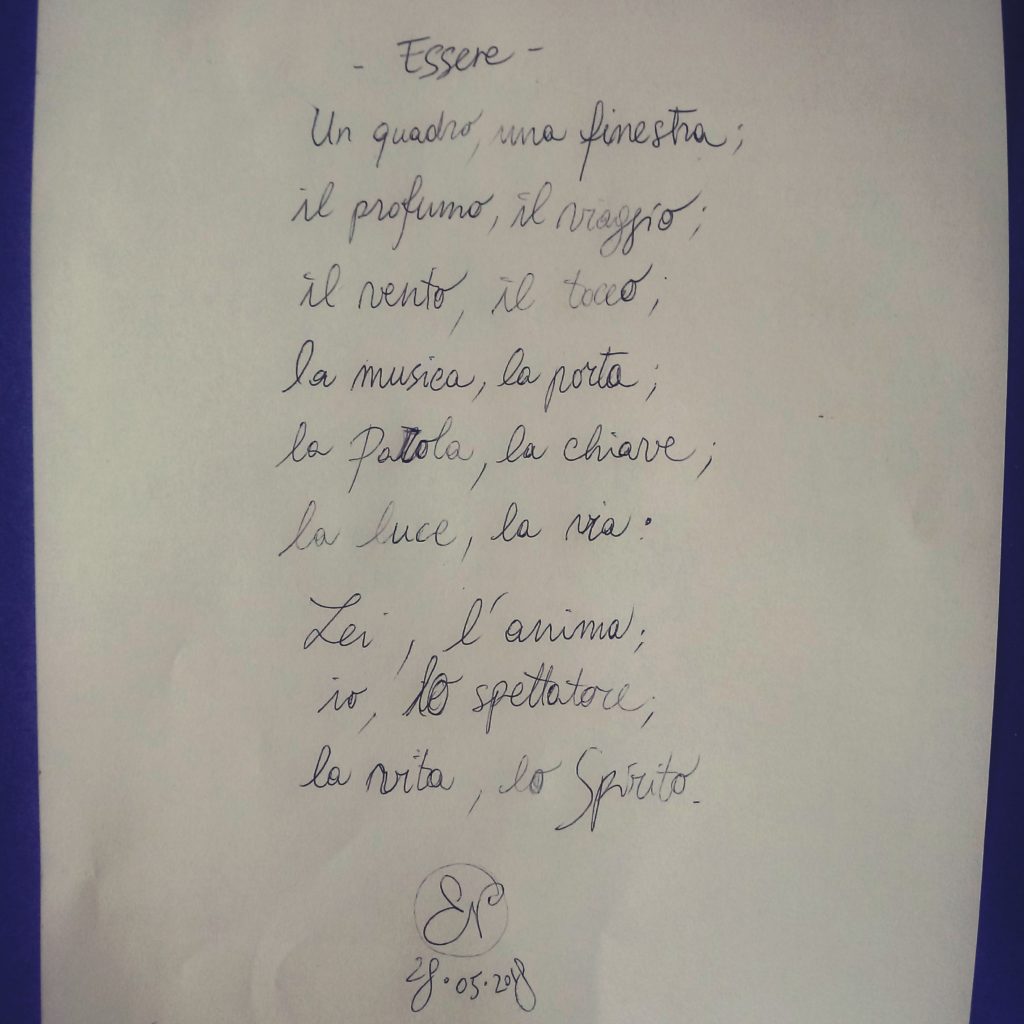 - Essere -
Un quadro, una finestra;
il profumo, il viaggio;
il vento, il tocco;
la musica, la porta;
la Parola, la chiave;
la luce, la via.
Lei, l'anima;
io, lo spettatore;
la vita, lo Spirito.
EN
28.05.2018